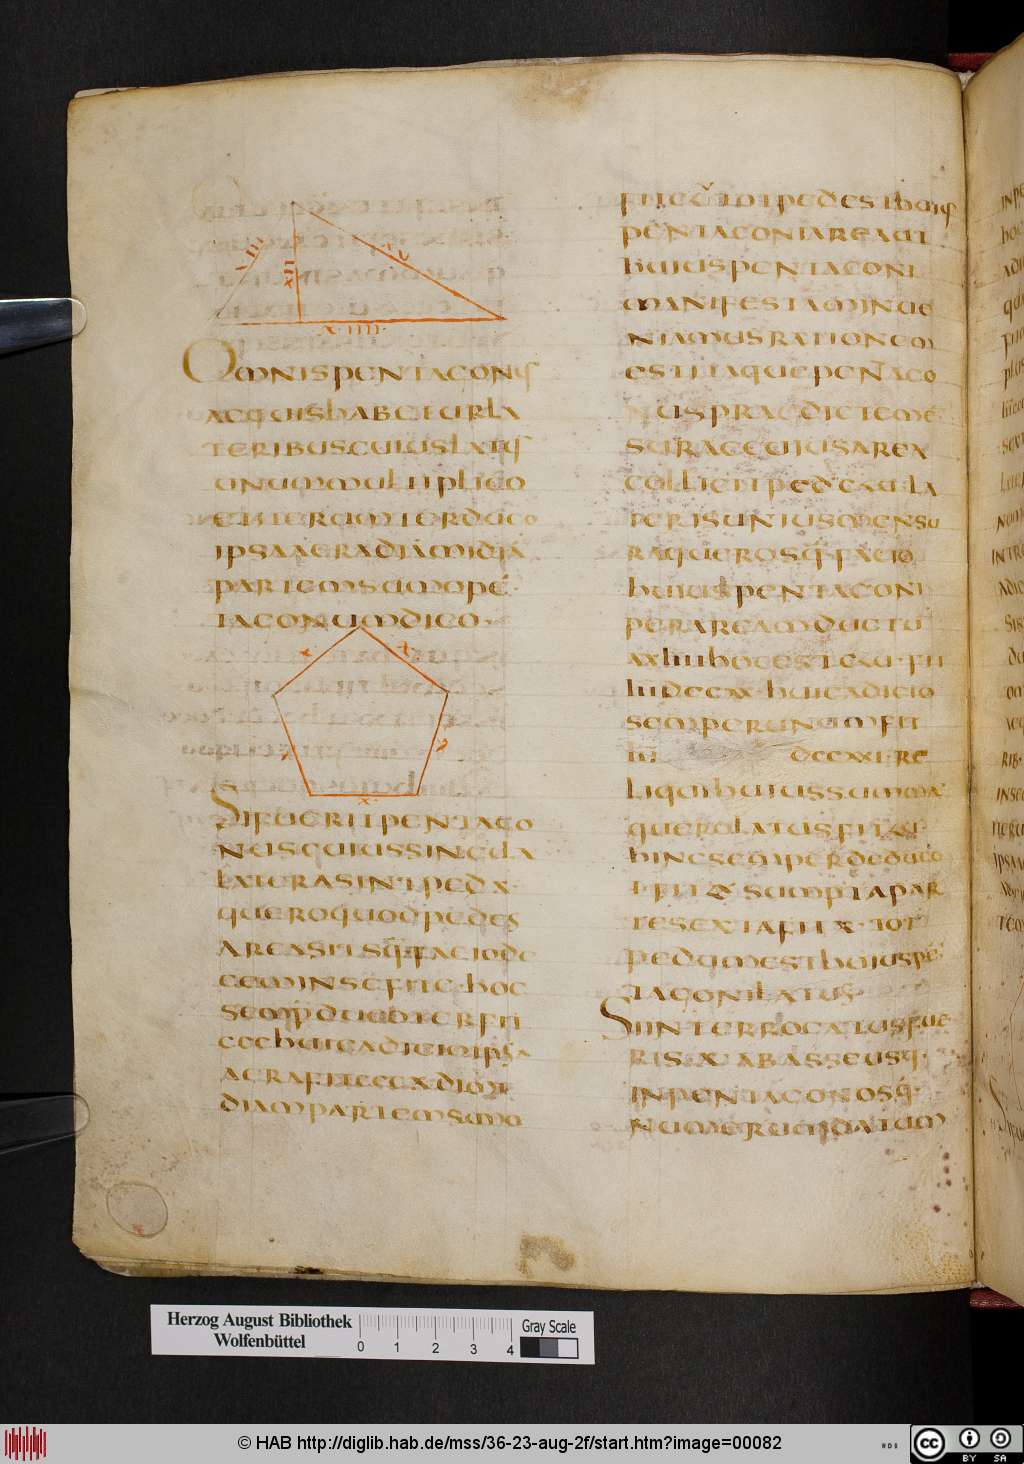 XIII
XV
XII
XIIII
OMNISPENTAGONUS
AEQUISHABETURLA
TERIBUSCUIUSLATUS
UNUMMULTIPLICO
ETITERUMTERDUCO
IPSAAERADIAMIDIĀ
PARTEMSUMOPĒ
TAGONUMDICO
X
X
X
X
X
SIFUERITPENTAGO
NUSCUIUSSINGULA
LATERASINTPEDX
QUEROQUODPEDES
AREASITSQ̄FACIODE
CEMINSEFITC·HOC
SEMPDUCOTERFIT
CCCHUICADICIOIPSA
AERAFITCCCXDIMI
DIAMPARTEMSUMO
FITCL·TOTPEDESTHUIUS
PENTAGONIAREAUT
HUIUSPENTAGONI
MANIFESTAMINUE
NIAMUSRATIONEM
ESTITAQUEPENTAGO
NUSPRAEDICTEME
SURAECUIUSAREA
COLLIGITPEDCLV·LA
TERISUNIUSMENSU
RAQUEROSQ̄·FACIO
HUIUSPENTAGONI
PERAREAMDUCTU
AXLIIIIHOCESTCLV·FIT
IIIIDCCXX·HUICADICIO
SEMPERUNUMFIT
IIII DCCXXI·RE
LIQUIHUIUSSUMMA
QUEROLATUSFITLXI·
HINCSEMPERDEDUCO
I·FITLXSUMPTAPAR
TESEXTAFITX·TOT
PEDUMESTHUIUSPĒ
TAGONILATUS·
SIINTERROGATUSFUE
RISXABASSEUSQ·
INPENTAGONOSQ̄·
NUMERUMDATUM
Herzog August Bibliothek
Wolfenbüttel
0 1 2 3 4
Gray Scale
© HAB http://diglib.hab.de/mss/36-23-aug-2f/start.htm?image=00082
cc BY SA